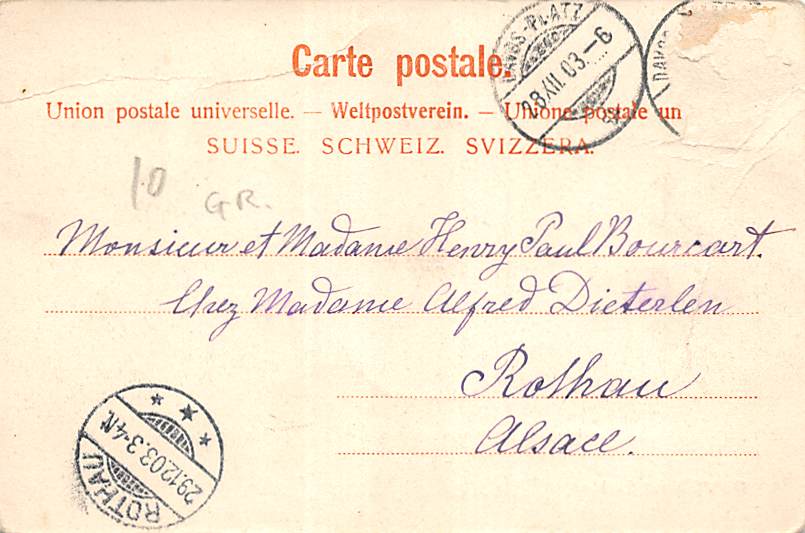 Carte postale.
Union postale universelle. — Weltpostverein. — Unione postale un
SUISSE. SCHWEIZ. SVIZZERA.
DAVOS-PLATZ
28.XII.03.–6
10 GR.
Monsieur et Madame Henry Paul Bourcart.
Chez Madame Alfred Dieterlen
Rothau
Alsace.
ROTHAU
29.12.03.3-4N.